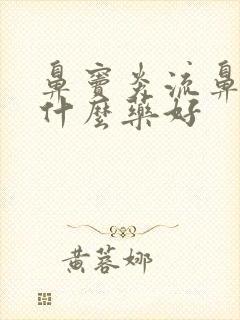 鼻窦炎流鼻
什麼藥好
黄蓉娜